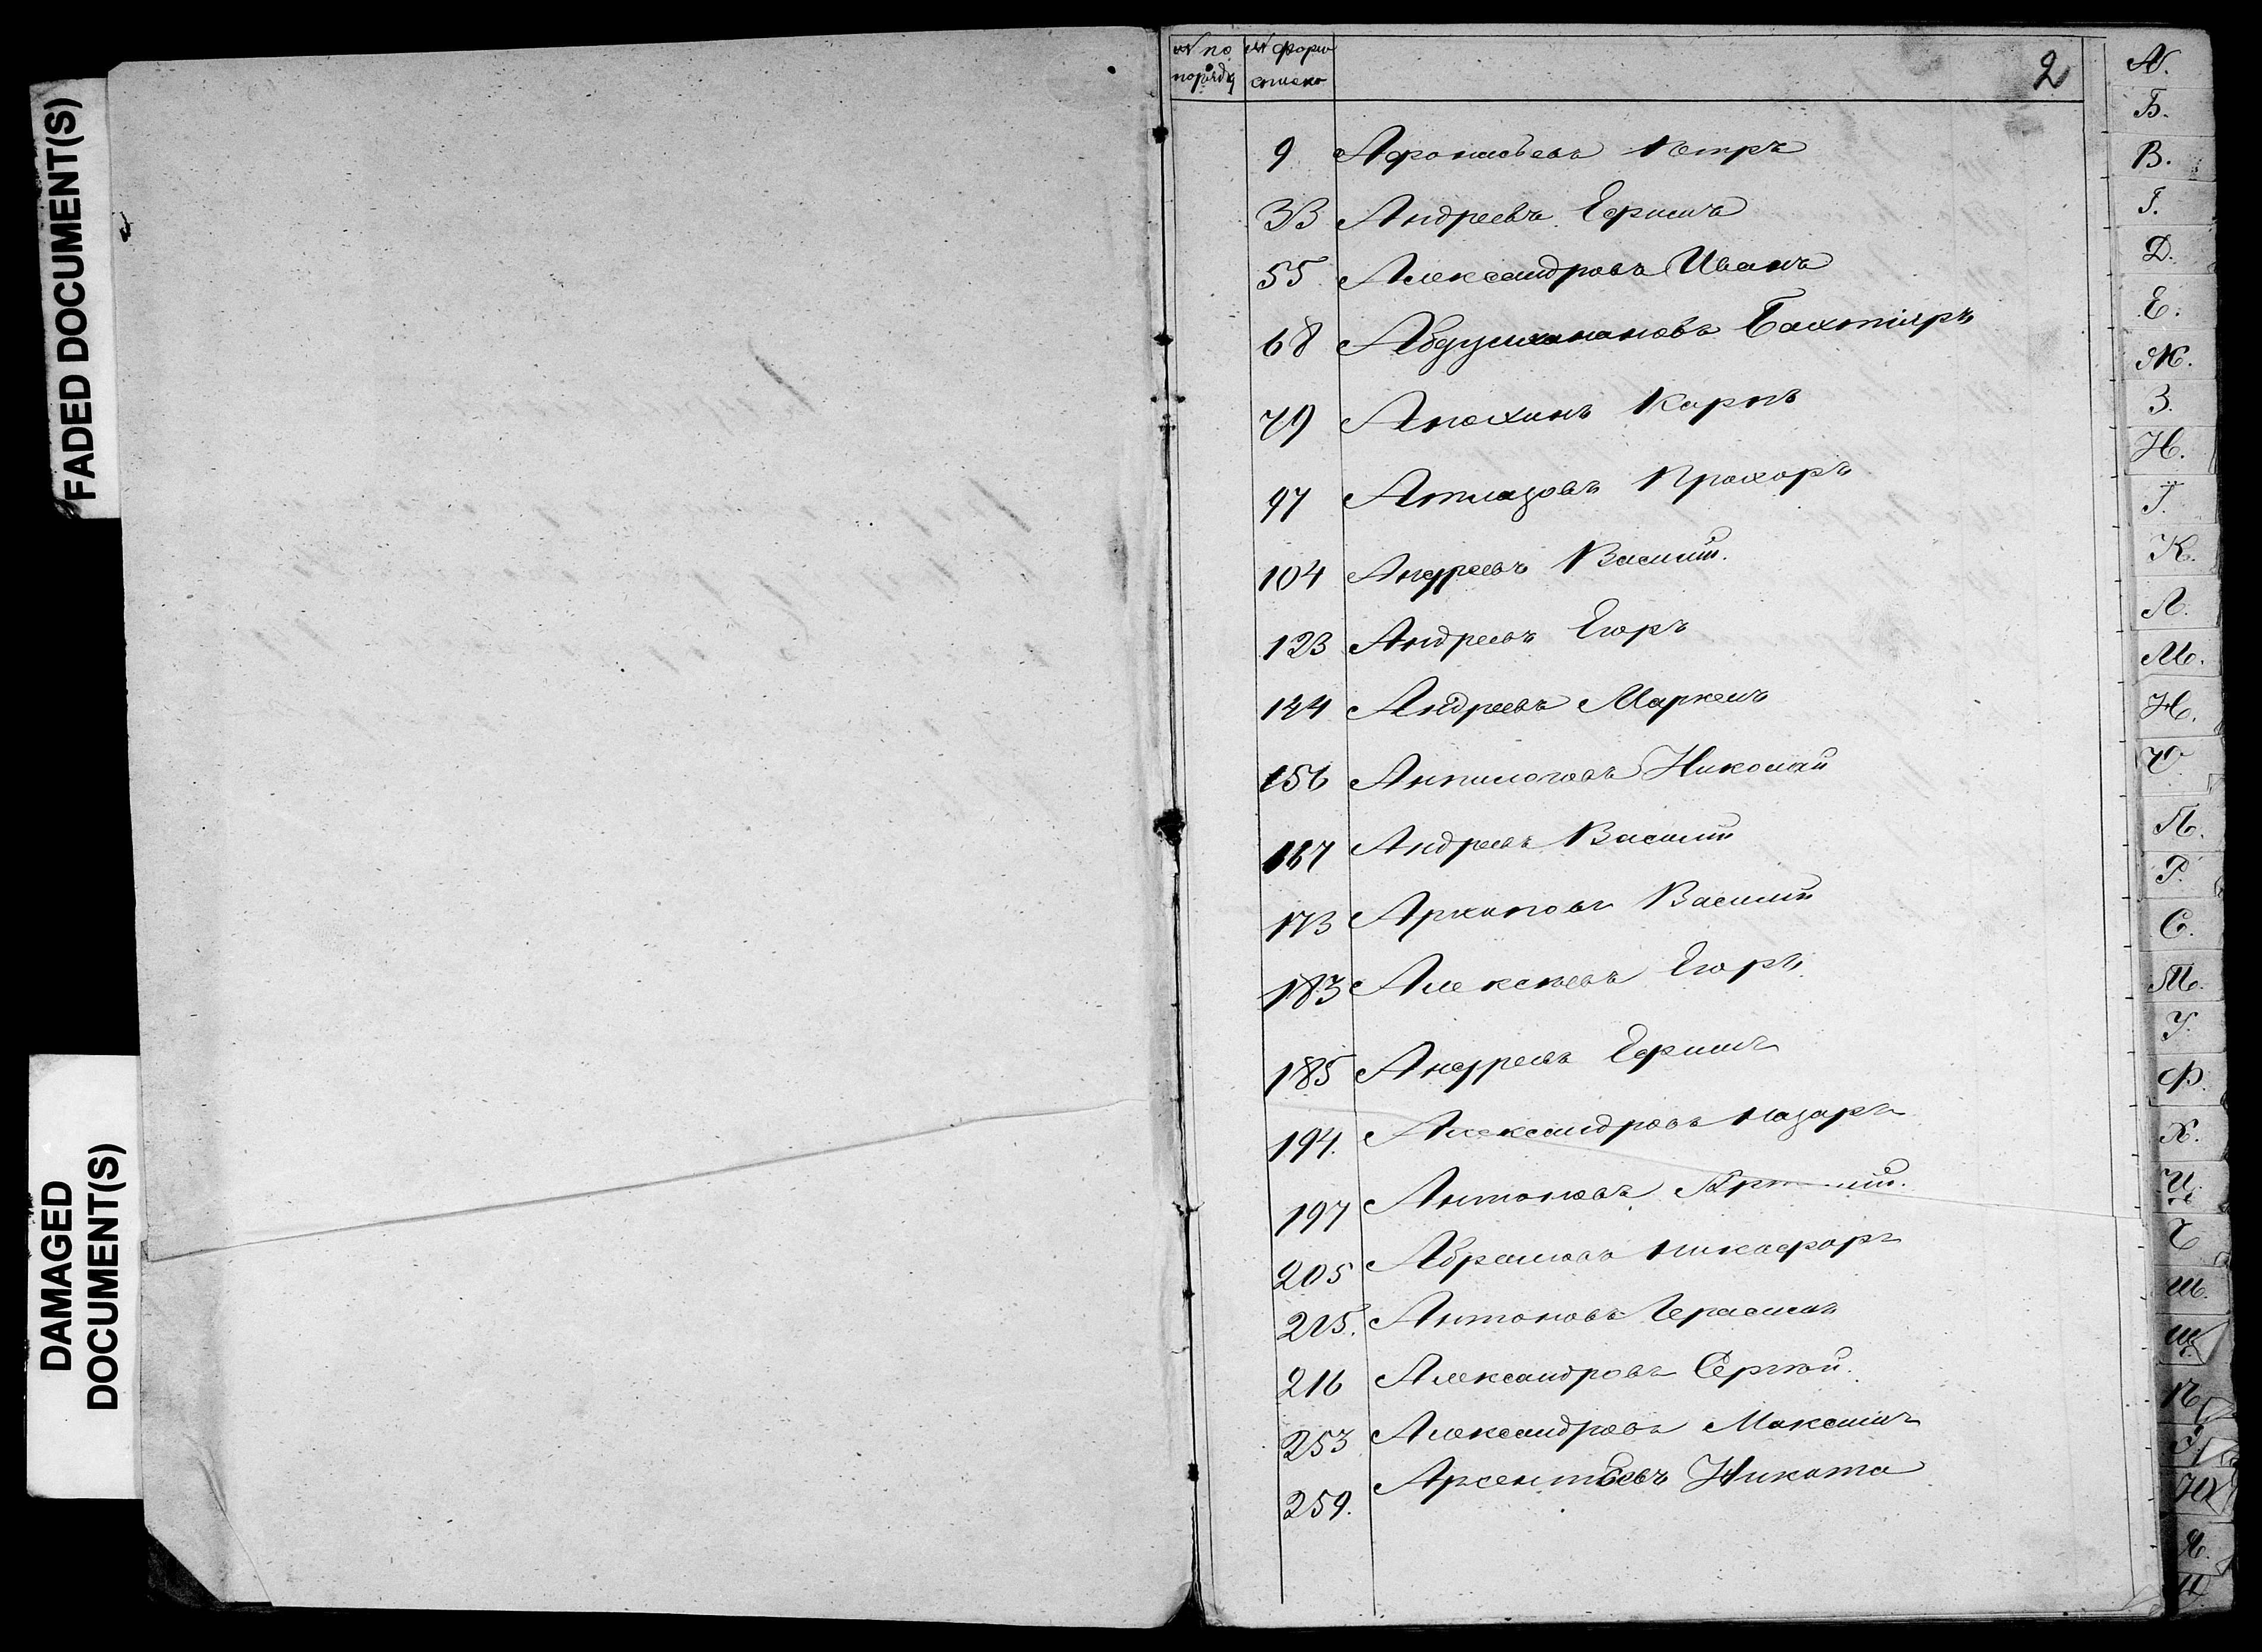 FADED DOCUMENT(S)
DAMAGED
DOCUMENT(S)
№ по порядку
№ форм списко
2
9 Афонасьевъ Петръ
33 Андреевъ Ефимъ
55 Александровъ Иванъ
68 Бахтіяръ
79 Анохинъ Карпъ
97 Атлазовъ Прохоръ
104 Андреевъ Василій.
123 Андреевъ Егоръ
144 Андреевъ Маркелъ
156 Анпилоговъ Николай
167 Андреевъ Василій
173 Архиповъ Василій
183 Алексѣевъ Егоръ
185 Андреевъ Ефимъ
194. Александровъ Назаръ
197 Антоновъ
205 Абрамовъ Никифоръ
215. Антоновъ Герасимъ
216 Александровъ Сергѣй.
253 Александровъ Максимъ
259. Арсентьевъ Никита
А.
Б.
В.
Г.
Д.
Е.
Ж.
З.
И.
І.
К.
Л.
М.
Н.
О
П.
Р.
С.
Т.
У.
Ф.
Х.
Ц.
Ч
Ш.
Щ.
Ю
Я.